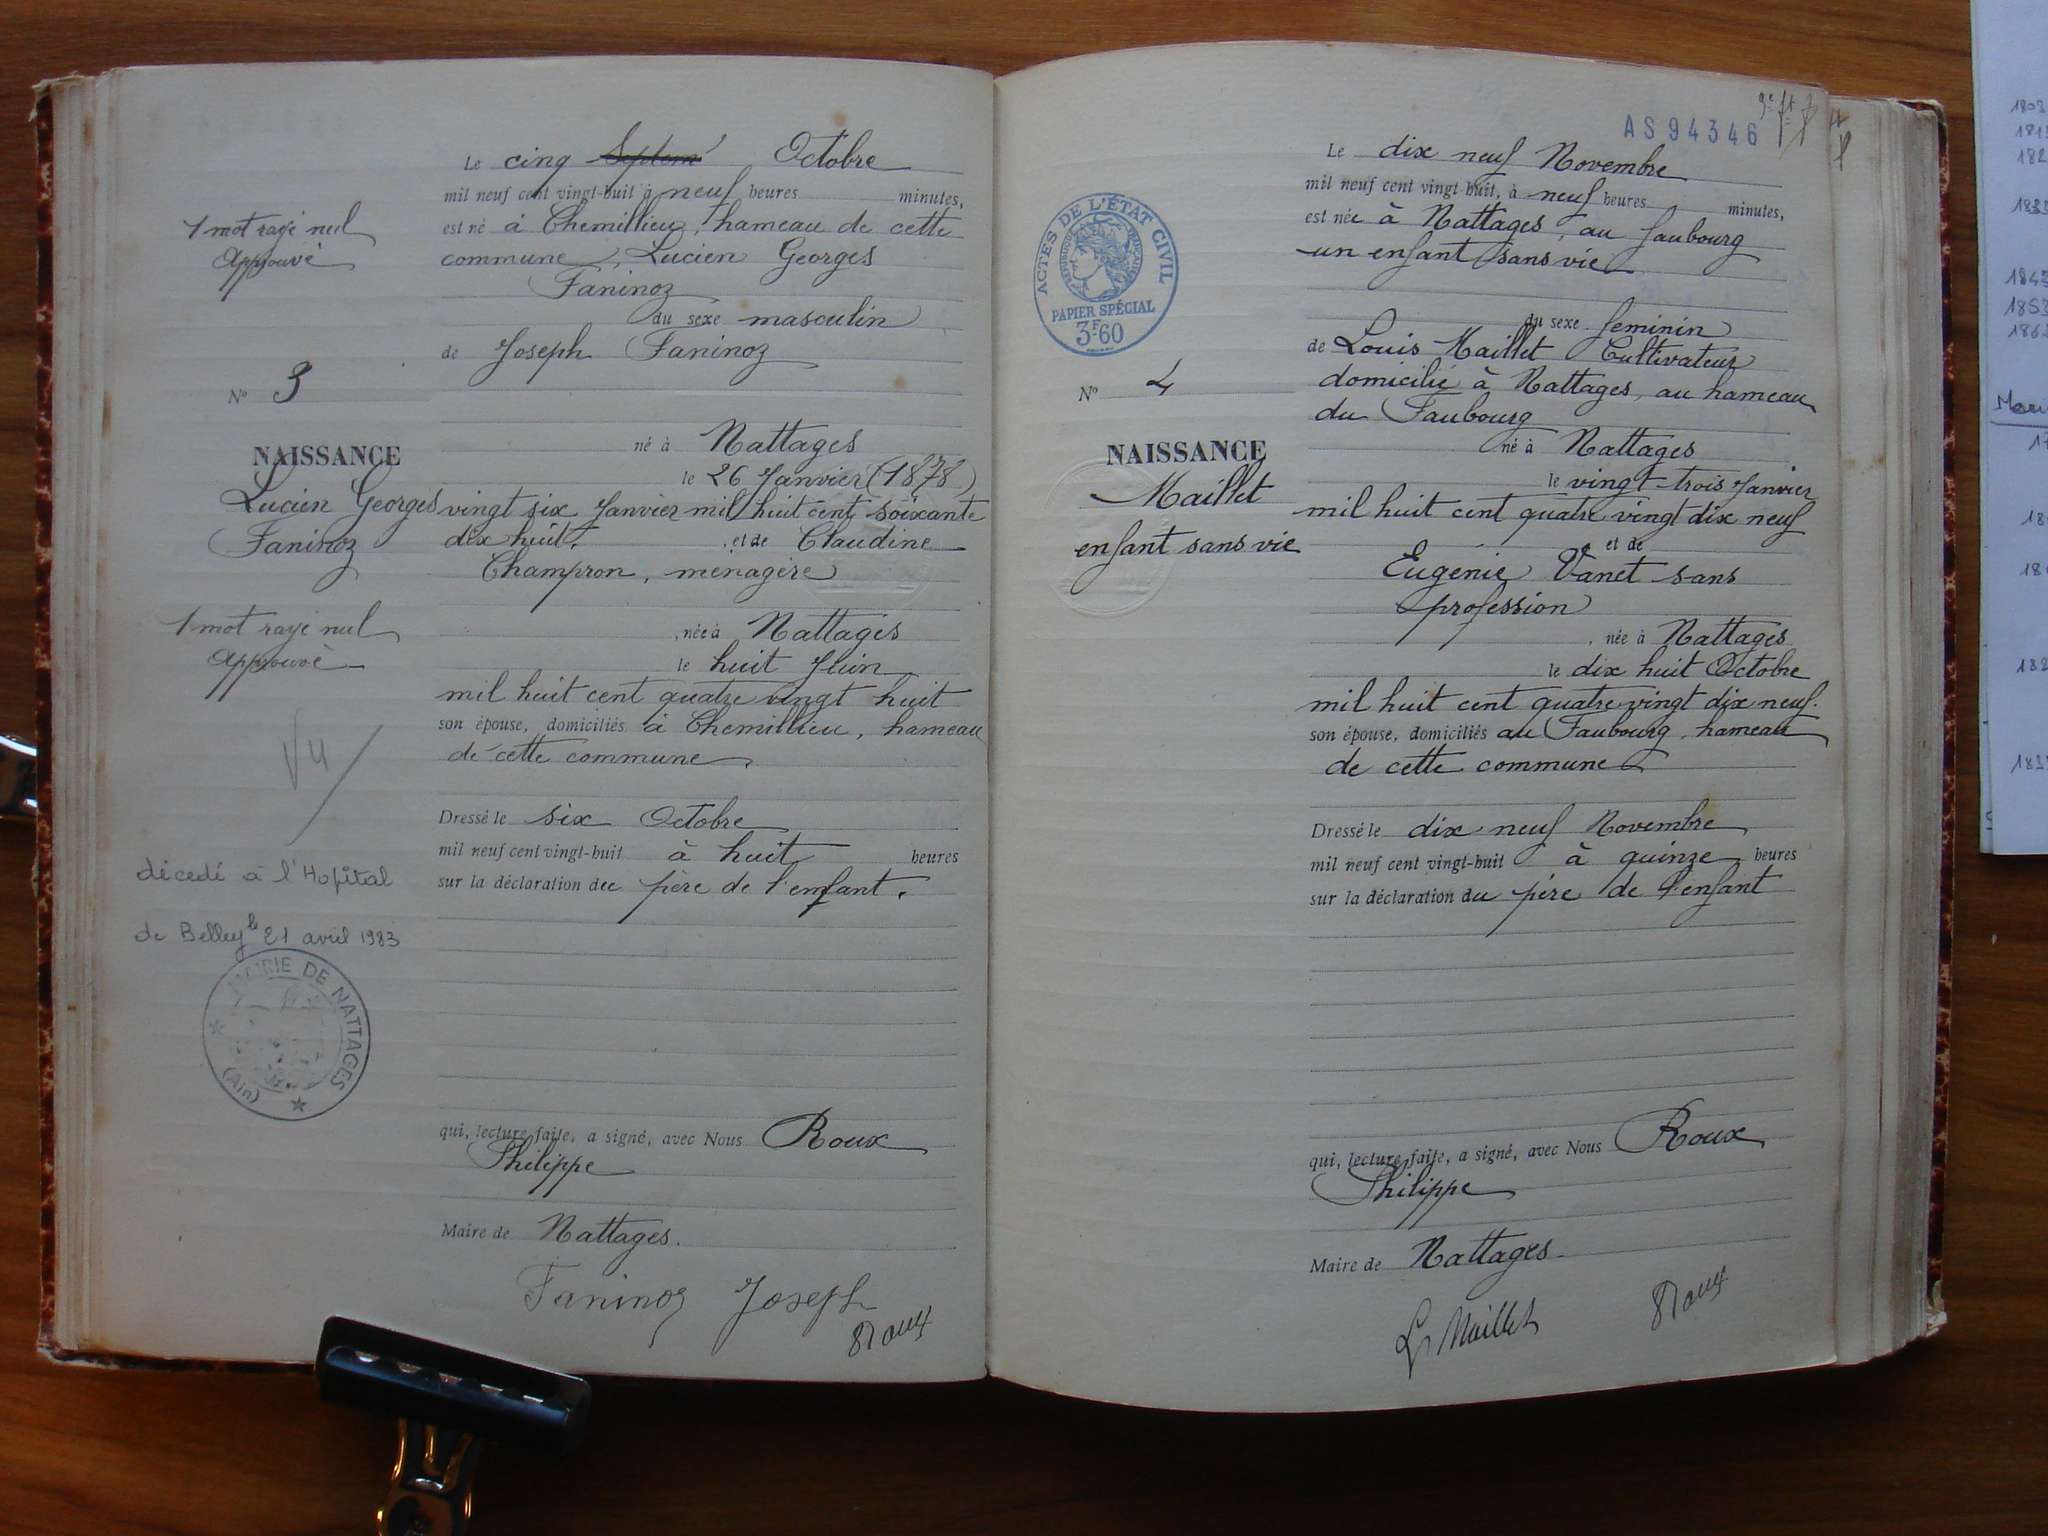 Le cinq Septem Octobre
mil neuf cent vingt-huit à neuf heures minutes,
est né à Chemillieu, hameau de cette
commune, Lucien Georges
Faninoz
du sexe masculin
de Joseph Faninoz
né à Nattages
le 26 Janvier (1878)
vingt six Janvier mil huit cent soixante
dix huit. , et de Claudine
Champron, ménagère
, née à Nattages
le huit Juin
mil huit cent quatre vingt huit
son épouse, domiciliés à Chemillieu, hameau
de cette commune.
Dressé le six Octobre
mil neuf cent vingt-huit à huit heures
sur la déclaration du père de l'enfant.
qui, lecture faite, a signé, avec Nous Roux
Philippe
Maire de Nattages.
Faninoz Joseph
Roux
1 mot rayé nul
Approuvé
N° 3
NAISSANCE
Lucien Georges
Faninoz
1 mot rayé nul
Approuvé
Vu
décédé à l'Hopital
de Belley le 21 avril 1983
MAIRIE DE NATTAGES
(Ain)
AS94346
Le dix neuf Novembre
mil neuf cent vingt-huit, à neuf heures minutes,
est née à Nattages, au faubourg
un enfant sans vie
du sexe feminin
de Louis Maillet Cultivateur
domicilié à Nattages, au hameau
du Faubourg
né à Nattages
le vingt-trois Janvier
mil huit cent quatre vingt dix neuf
et de
Eugénie Vanet sans
profession
, née à Nattages
le dix huit Octobre
mil huit cent quatre-vingt dix neuf.
son épouse, domiciliés au Faubourg, hameau
de cette commune
Dressé le dix-neuf Novembre
mil neuf cent vingt-huit à quinze heures
sur la déclaration du père de l'enfant
qui, lecture faite, a signé, avec Nous Roux
Philippe
Maire de Nattages.
L Maillet
Roux
ACTES DE L'ÉTAT CIVIL
RÉPUBLIQUE FRANÇAISE
PAPIER SPÉCIAL
3F60
N° 4
NAISSANCE
Maillet
enfant sans vie
1803